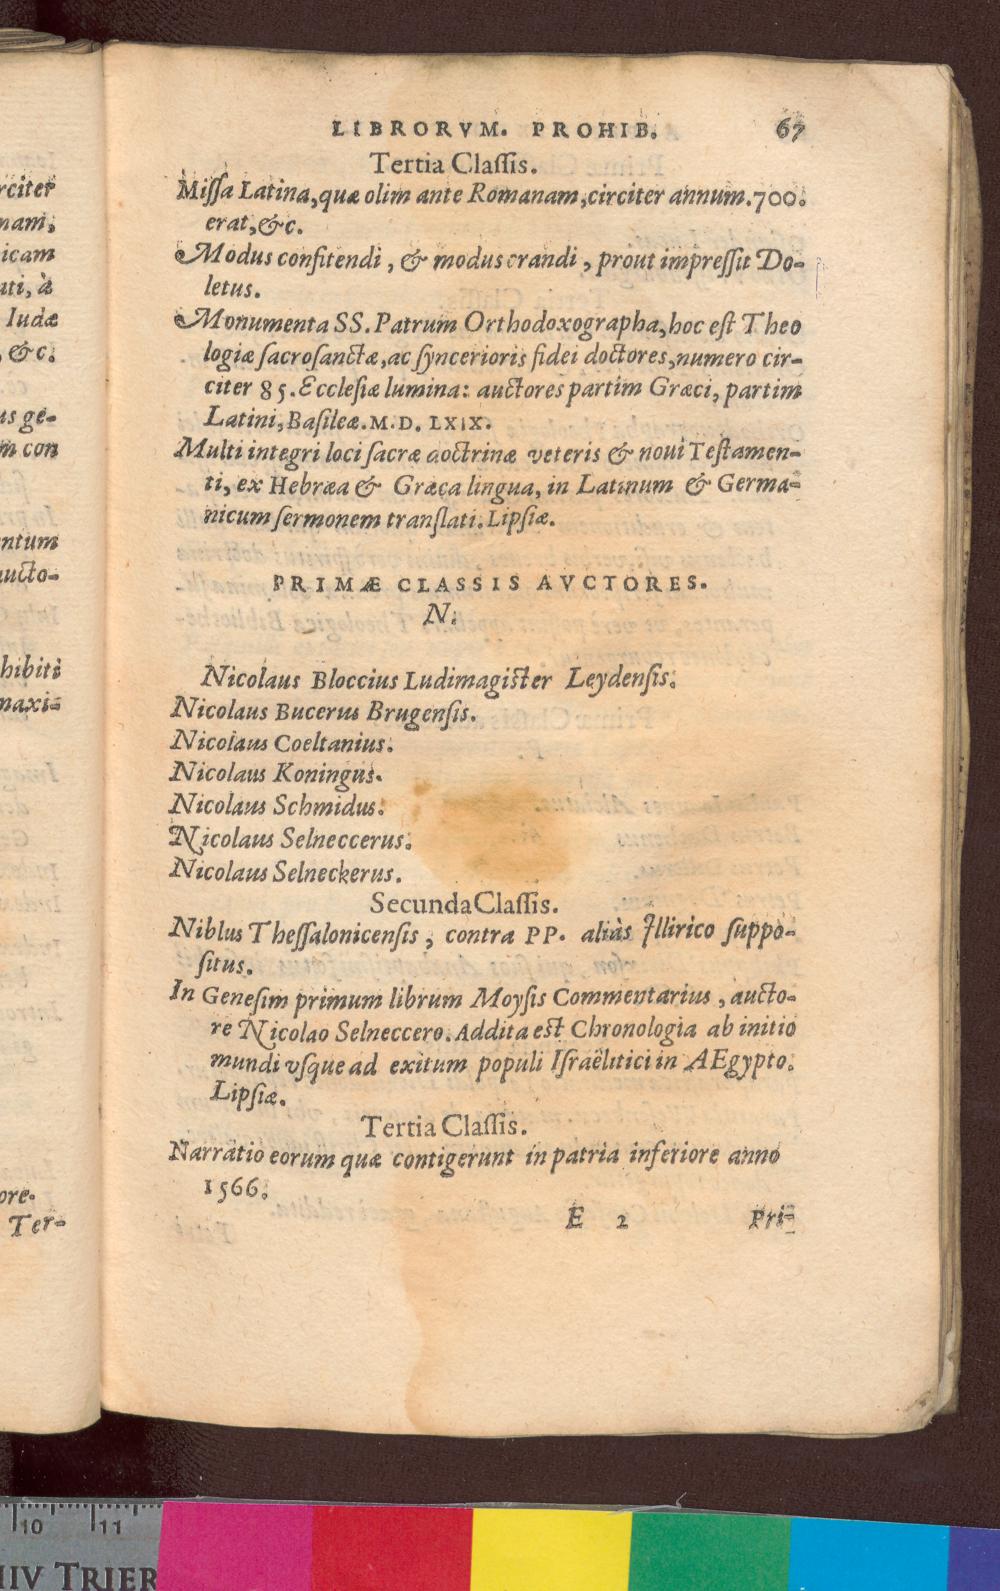 LIBRORVM. PROHIB. 67
Tertia Classis.
Missa Latina, quæ olim ante Romanam, circiter annum. 700.
erat, &c.
Modus confitendi, & modus orandi, prout impressit Do-
letus.
Monumenta SS. Patrum Orthodoxographa, hoc est Theo
logiæ sacrosanctæ, ac syncerioris fidei doctores, numero cir-
citer 85. Ecclesiæ lumina: auctores partim Græci, partim
Latini, Basileæ. M.D. LXIX.
Multi integri loci sacræ doctrinæ veteris & noui Testamen-
ti, ex Hebræa & Græca lingua, in Latinum & Germa-
nicum sermonem translati. Lipsiæ.
PRIMÆ CLASSIS AVCTORES.
N.
Nicolaus Bloccius Ludimagister Leydensis.
Nicolaus Bucerus Brugensis.
Nicolaus Coeltanius.
Nicolaus Koningus.
Nicolaus Schmidus.
Nicolaus Selneccerus.
Nicolaus Selneckerus.
Secunda Classis.
Niblus Thessalonicensis, contra PP. aliàs Illirico suppo-
situs.
In Genesim primum librum Moysis Commentarius, aucto-
re Nicolao Selneccero. Addita est Chronologia ab initio
mundi vsque ad exitum populi Israëlitici in AEgypto.
Lipsiæ.
Tertia Classis.
Narratio eorum quæ contigerunt in patria inferiore anno
1566.
E 2 Pri-
rciter
nam,
icam
uti, à
Iudæ
, &c.
us ge-
m con
ntum
aucto-
hibiti
maxi-
ore.
Ter-
10 11
IV TRIER